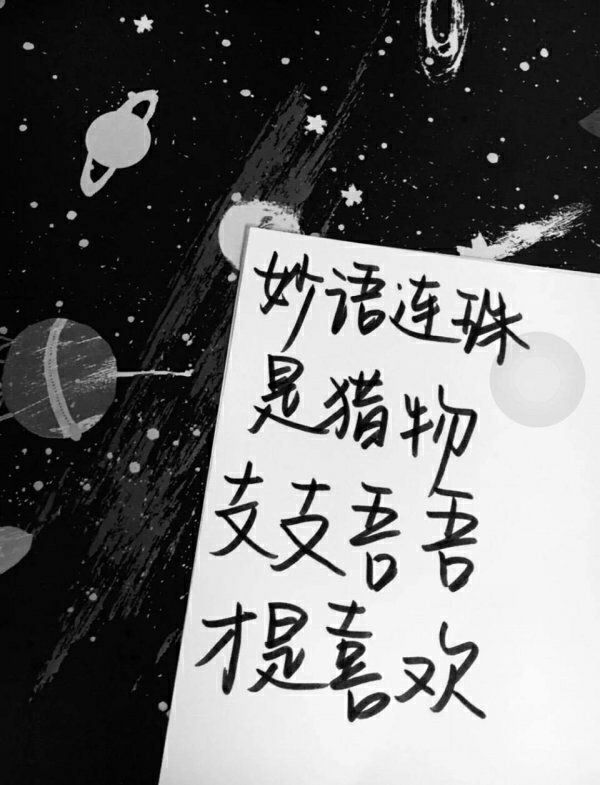 妙语连珠
是猎物
支支吾吾
才是喜欢